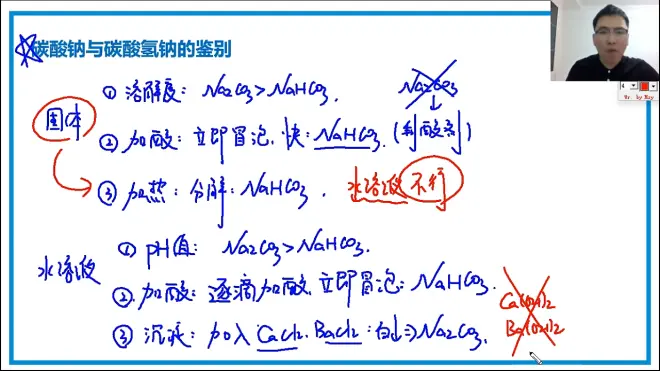 碳酸钠与碳酸氢钠的鉴别
固体
① 溶解度: Na₂CO₃ > NaHCO₃.
Na₂CO₃
② 加酸: 立即冒泡. 快: NaHCO₃. (制酸剂)
③ 加热: 分解: NaHCO₃. 水溶液不行
水溶液
① pH值: Na₂CO₃ > NaHCO₃.
② 加酸: 逐滴加酸. 立即冒泡: NaHCO₃.
③ 沉淀: 加入 CaCl₂. BaCl₂: 白↓ ⇒ Na₂CO₃.
Ca(OH)₂
Ba(OH)₂
4